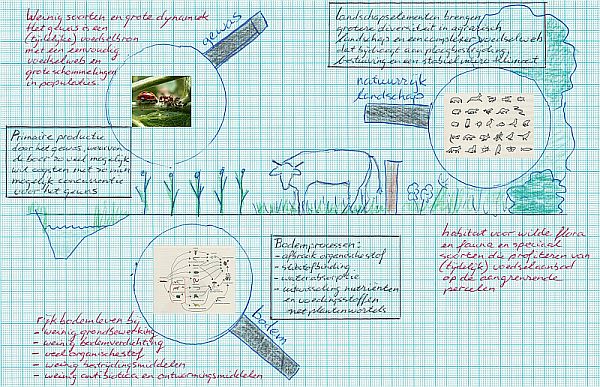 Weinig soorten en grote dynamiek
Het gewas is een
(tijdelijke) voedselbron
met een eenvoudig
voedselweb en
grote schommelingen
in populaties.
gewas
Landschapselementen brengen
grotere diversiteit in agrarisch
landschap en een complexer voedselweb
dat bijdraagt aan plaagbestrijding,
bestuiving en een stabiel microklimaat
natuurrijk
landschap
Primaire productie
door het gewas, waarvan
de boer zo veel mogelijk
wil oogsten met zo min
mogelijk concurrentie
voor het gewas
Bodemprocessen:
- afbraak organische stof
- stikstofbinding
- waterabsorptie
- uitwisseling nutriënten
en voedingsstoffen
met plantenwortels
habitat voor wilde flora
en fauna en speciaal
soorten die profiteren van
(tijdelijk) voedselaanbod
op de aangrenzende
percelen
bodem
rijk bodemleven bij
- weinig grondbewerking
- weinig bodemverdichting
- veel organische stof
- weinig bestrijdingsmiddelen
- weinig antibiotica en ontwormingsmiddelen